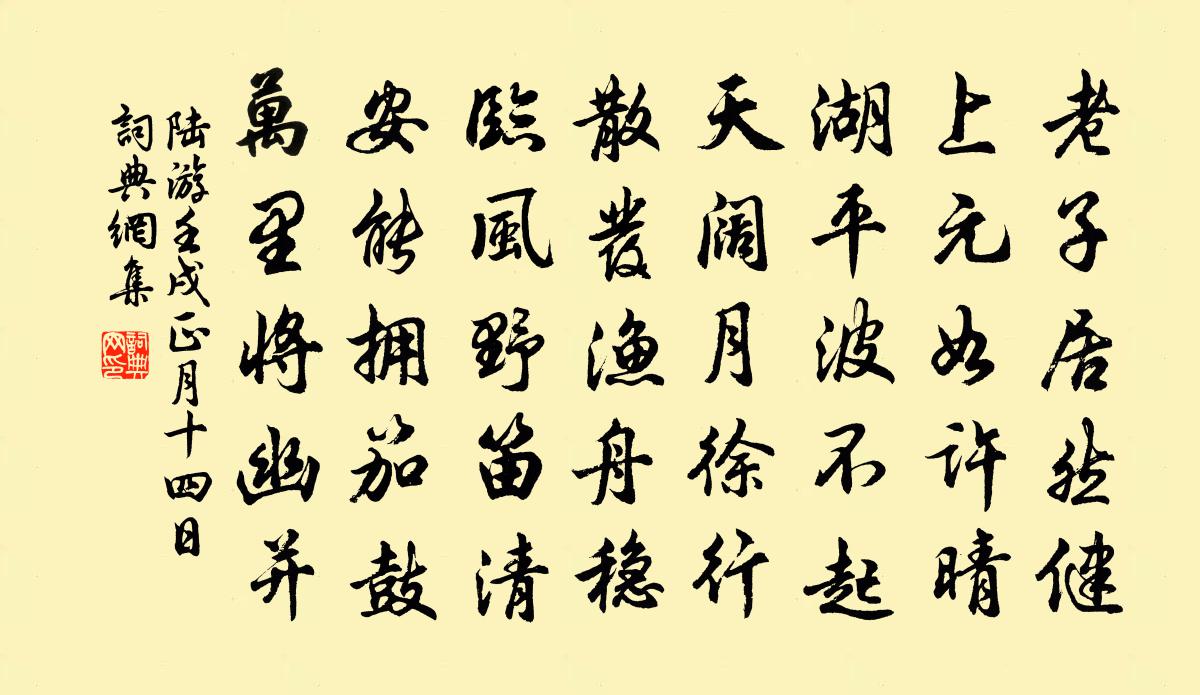 老子居然健
上元如許晴
湖平波不起
天闊月徐行
散發漁舟穩
臨風野笛清
安能擁笳鼓
萬里將幽并
陸游壬戌正月十四日
詞典網集
詞典網印